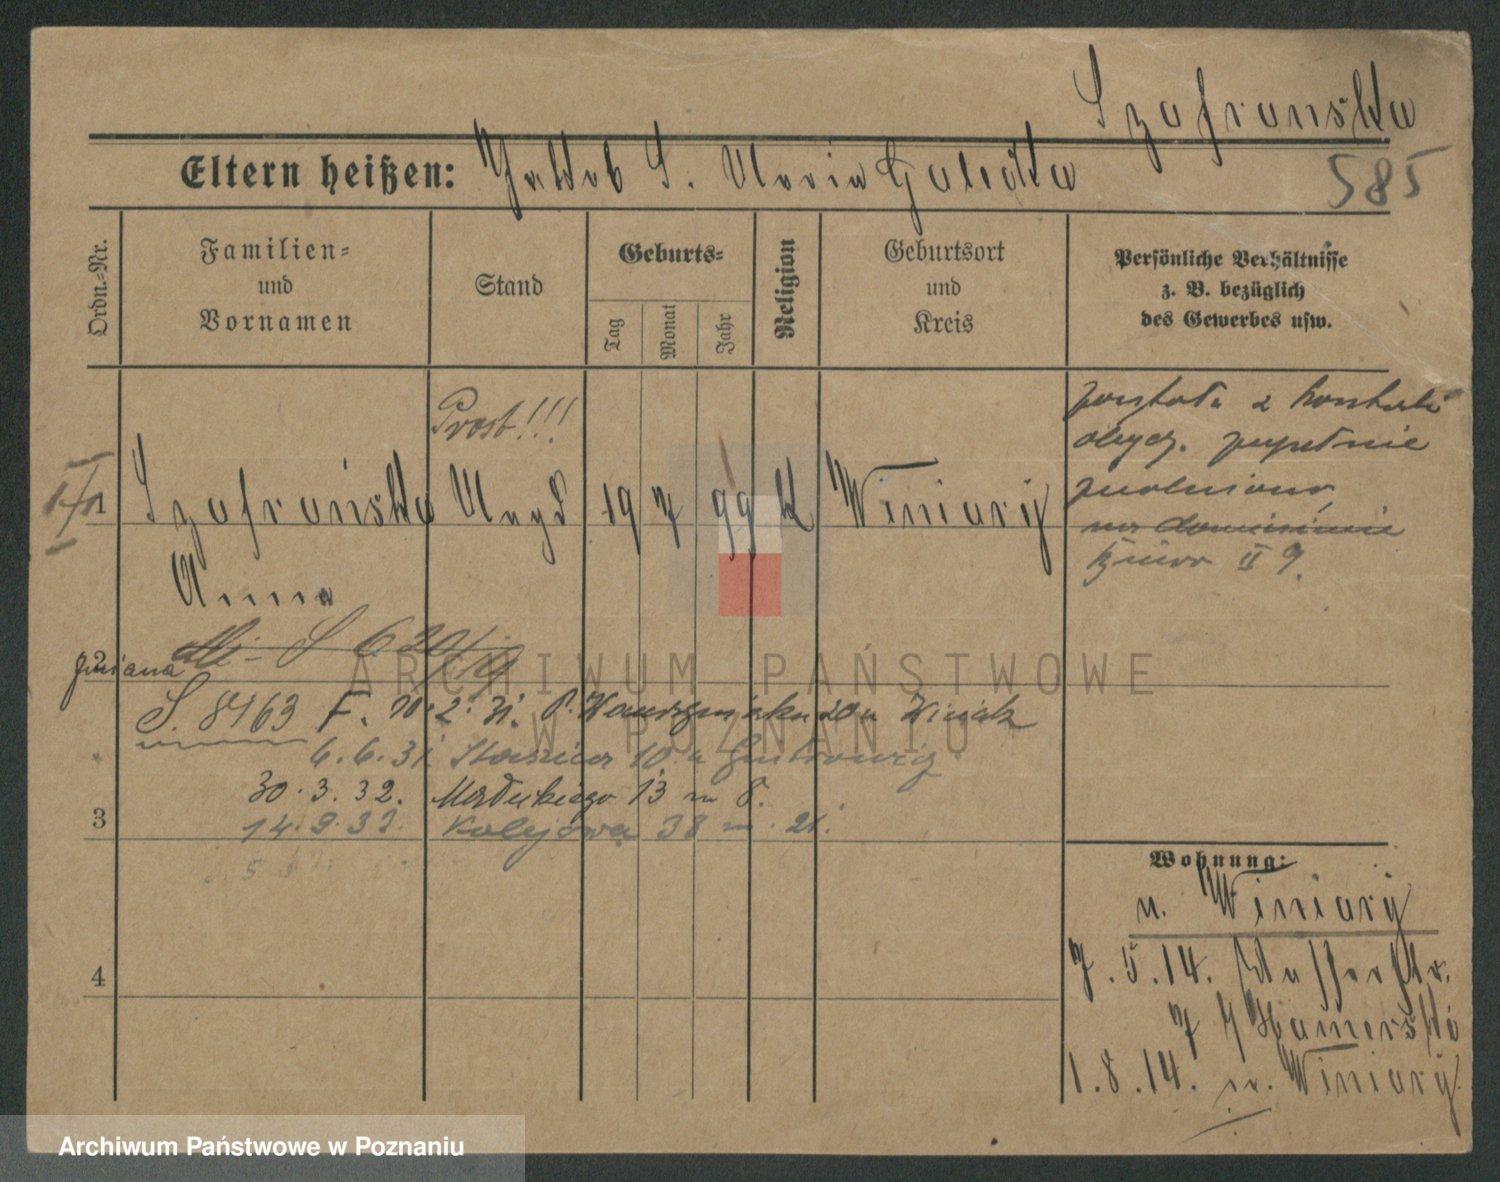 Szafrańska
585
Eltern heißen: Jakob S. Maria Galecka
Ordn.-Nr.
Familien-
und
Vornamen
Stand
Geburts-
Tag
Monat
Jahr
Religion
Geburtsort
und
Kreis
Persönliche Verhältnisse
z. B. bezüglich
des Gewerbes usw.
Prost!!!
została z kontroli
obycz. zupełnie
zwolniona
1 Szafrańska Magd 19 7 99 k Winiary
II 9.
Anna
2
S 620/19
S. 8463 F. 10.2.31.
6.6.31 10
30.3.32. Małeckiego 13 m 8.
3
14.9.33. Kolejowa 38 m. 21.
Wohnung:
n. Winiary
7.5.14. Wasserstr.
4
7 Hamerski
1.8.14. n. Winiary
ARCHIWUM PAŃSTWOWE
W POZNANIU
Archiwum Państwowe w Poznaniu